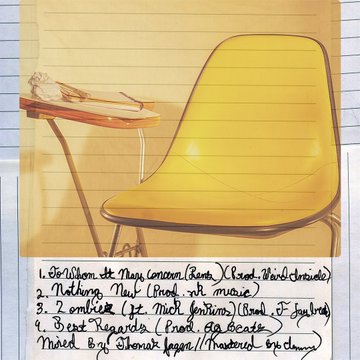 1. To Whom It May Concern (Rent) (Prod. Weird Inside)
2. Nothing New (Prod. nk music)
3. Zombies (ft. Mick Jenkins) (Prod. J
4. Best Regards (Prod. Beats)
Mixed By Thomas // Mastered